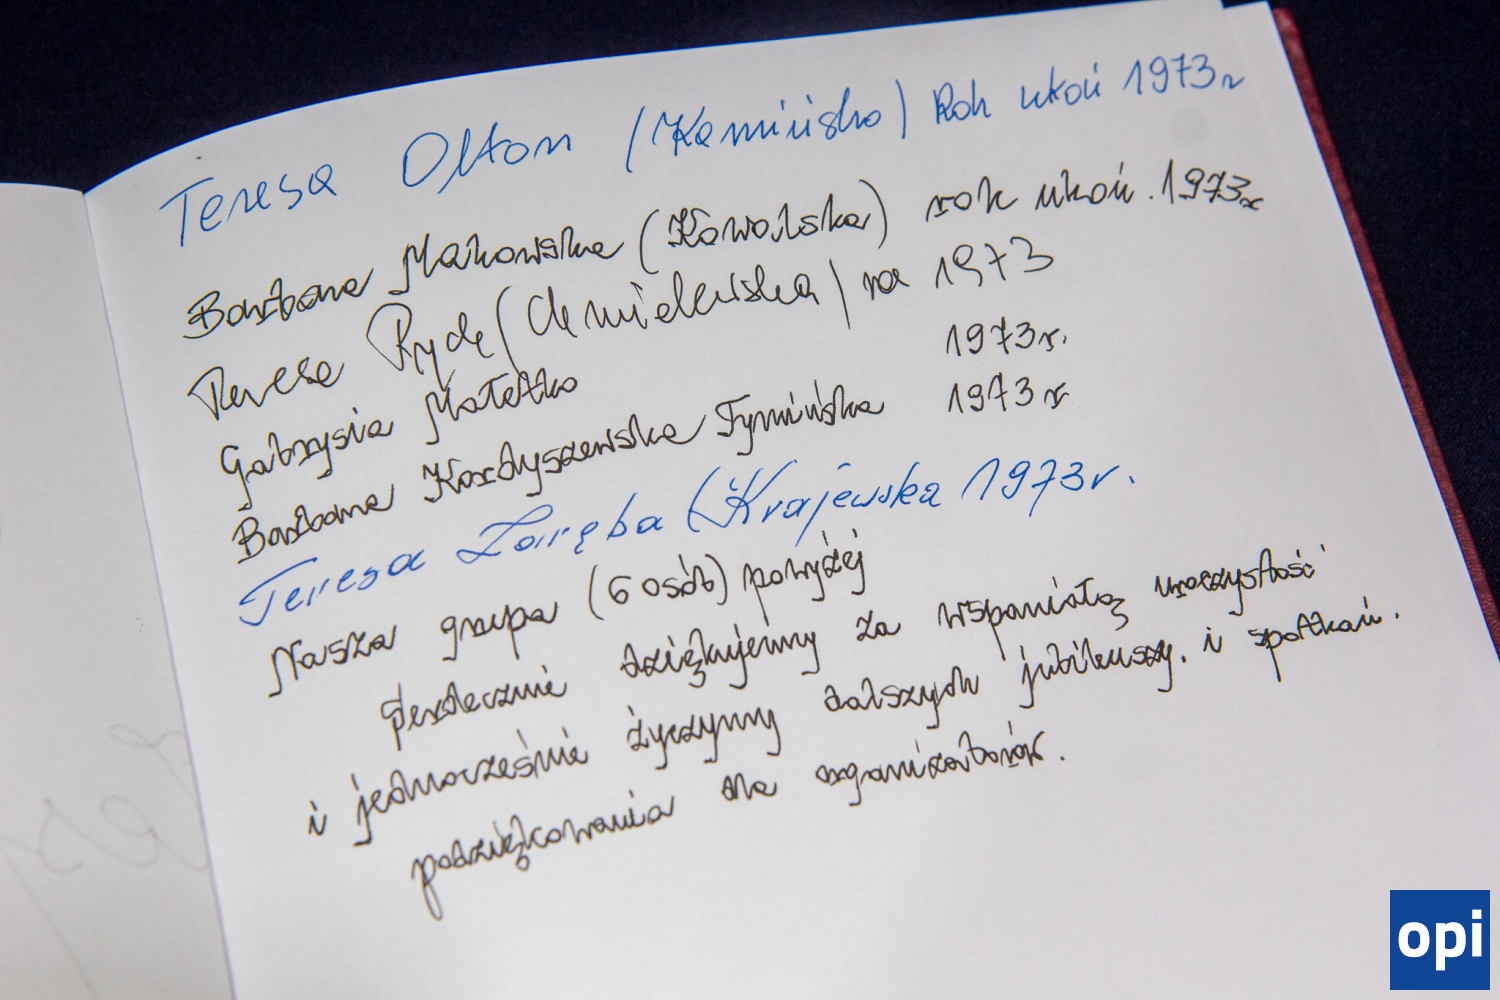 Teresa Oltom (Kamińska) Rok ukoń 1973r
Barbara Makowska (Kowalska) rok ukoń. 1973r
Teresa Ryde (Chmielewska) rok 1973
Gabrysia Matetko 1973r.
Barbara Kordyszewska Tymińska 1973r
Teresa Zaręba (Krajewska 1973r.
Nasza grupa (6 osób) powyżej
serdecznie dziękujemy za wspaniałą uroczystość
i jednocześnie życzymy dalszych jubileuszy. i spotkań.
podziękowania dla organizatorów.
opi